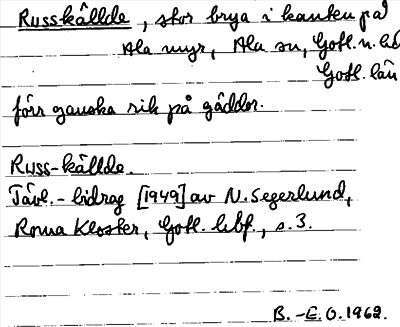 Russkällde, stor brya i kanten på
Ala myr, Ala sn, Gotl. n. hd
Gotl. län
förr ganska rik på gäddor.
Russ-källde.
Tävl.-bidrag [1949] av N. Segerlund,
Roma Kloster, Gotl. hbf., s. 3.
B.-E. O. 1962.